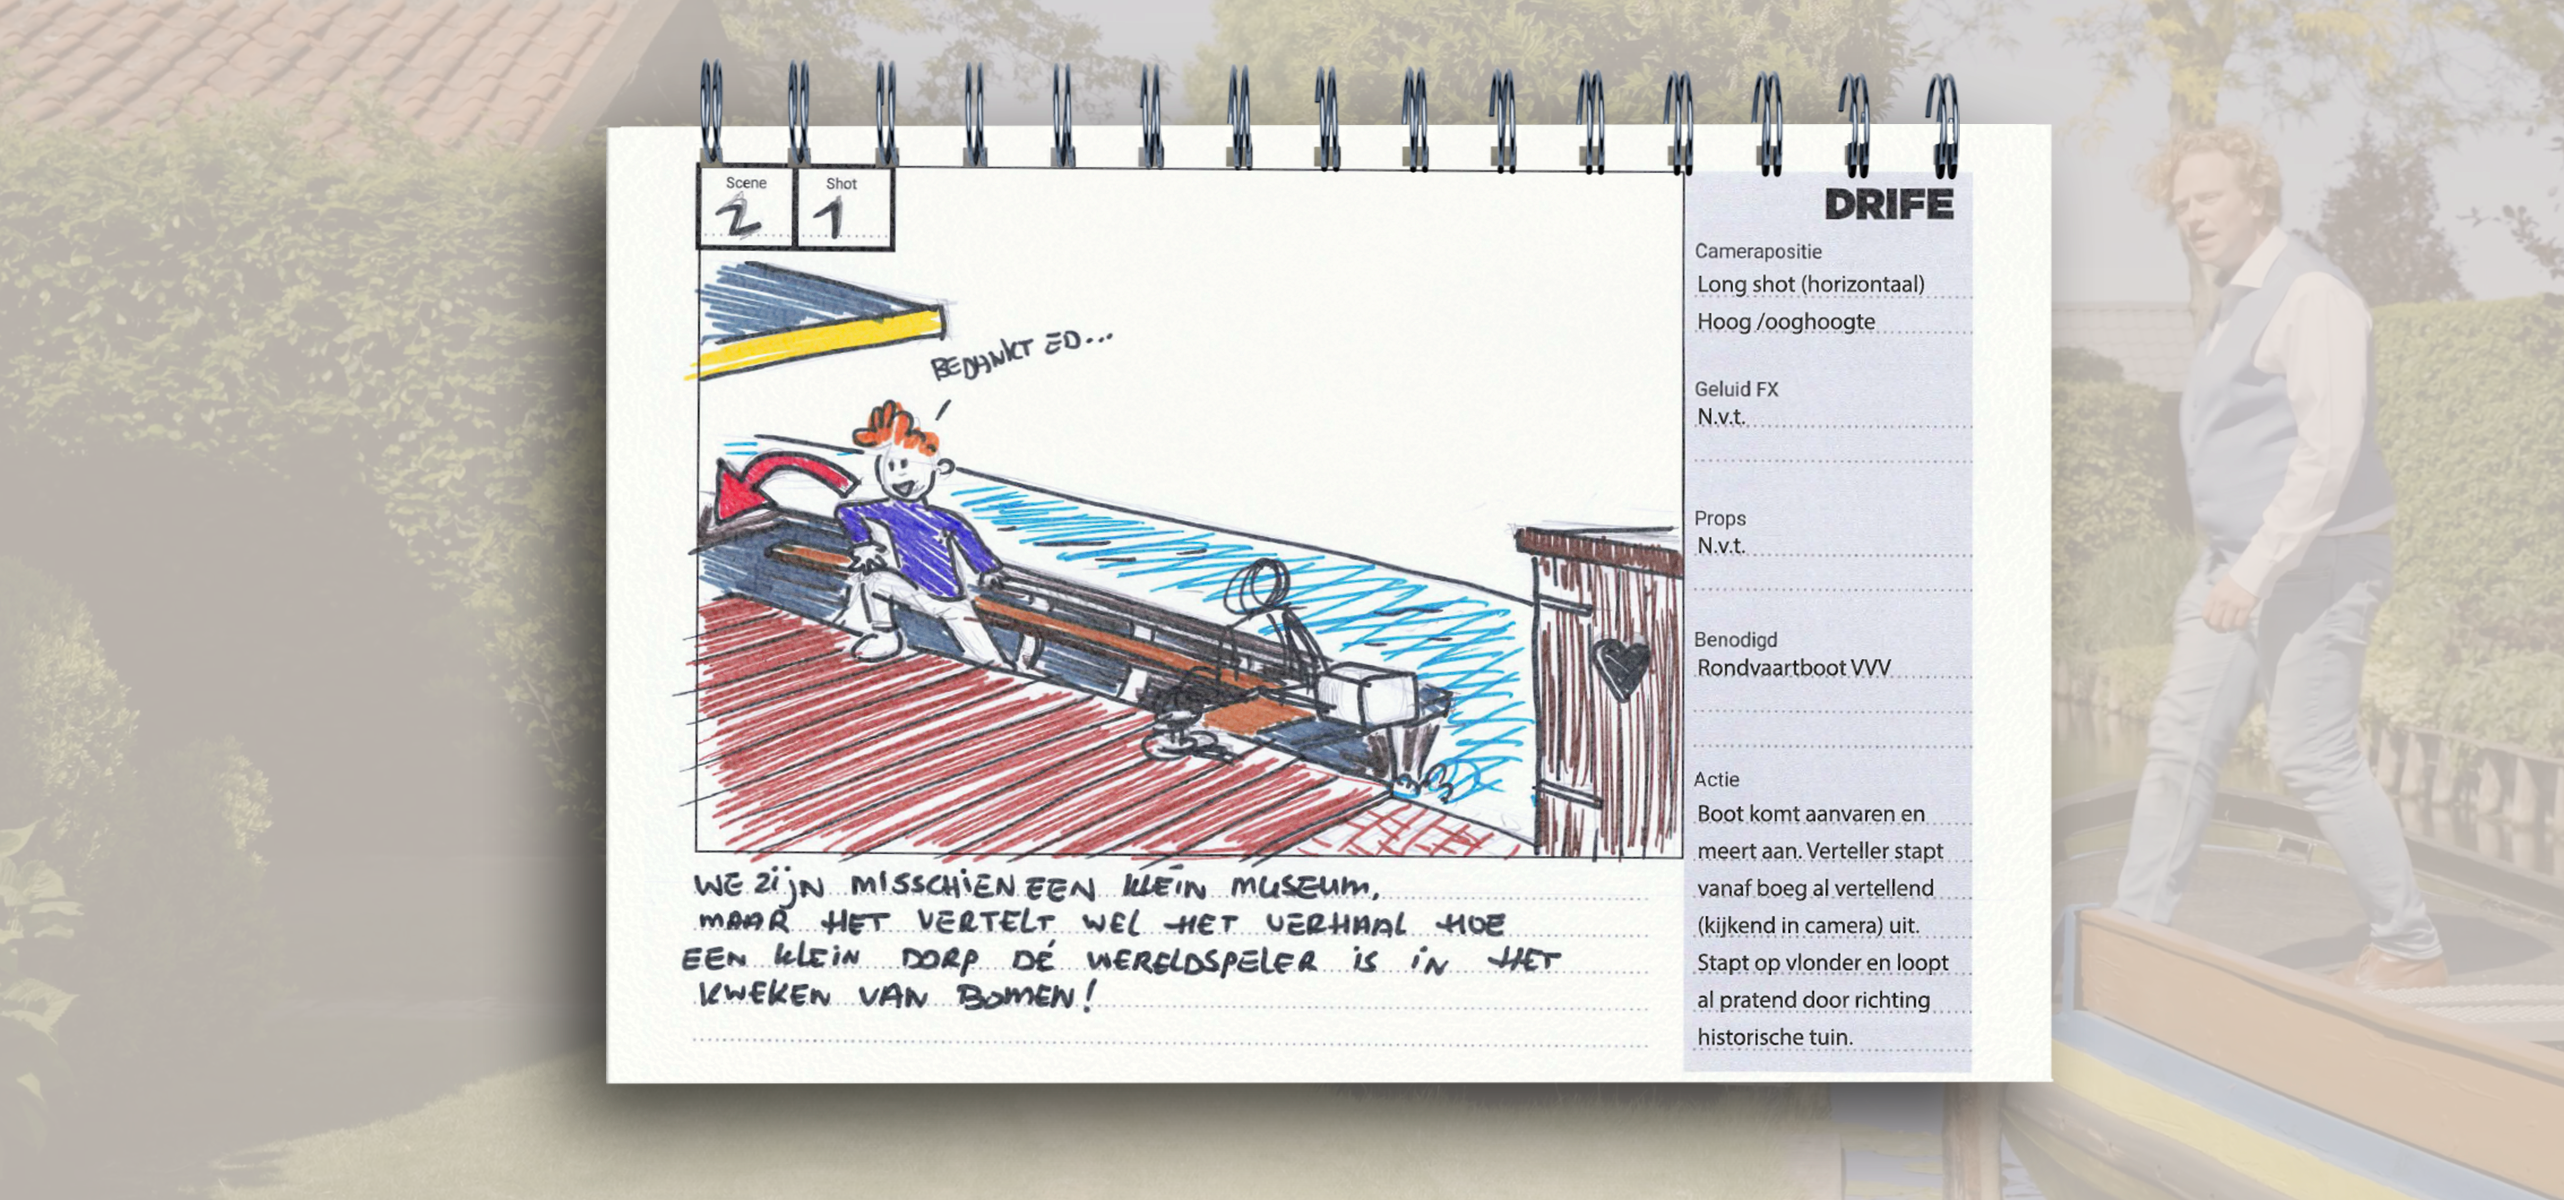 Scene
2
Shot
1
BEDANKT ED...
WE ZIJN MISSCHIEN EEN KLEIN MUSEUM,
MAAR HET VERTELT WEL HET VERHAAL HOE
EEN KLEIN DORP DÉ WERELDSPELER IS IN HET
KWEKEN VAN BOMEN!
DRIFE
Camerapositie
Long shot (horizontaal)
Hoog /ooghoogte
Geluid FX
N.v.t.
Props
N.v.t.
Benodigd
Rondvaartboot VVV
Actie
Boot komt aanvaren en
meert aan. Verteller stapt
vanaf boeg al vertellend
(kijkend in camera) uit.
Stapt op vlonder en loopt
al pratend door richting
historische tuin.